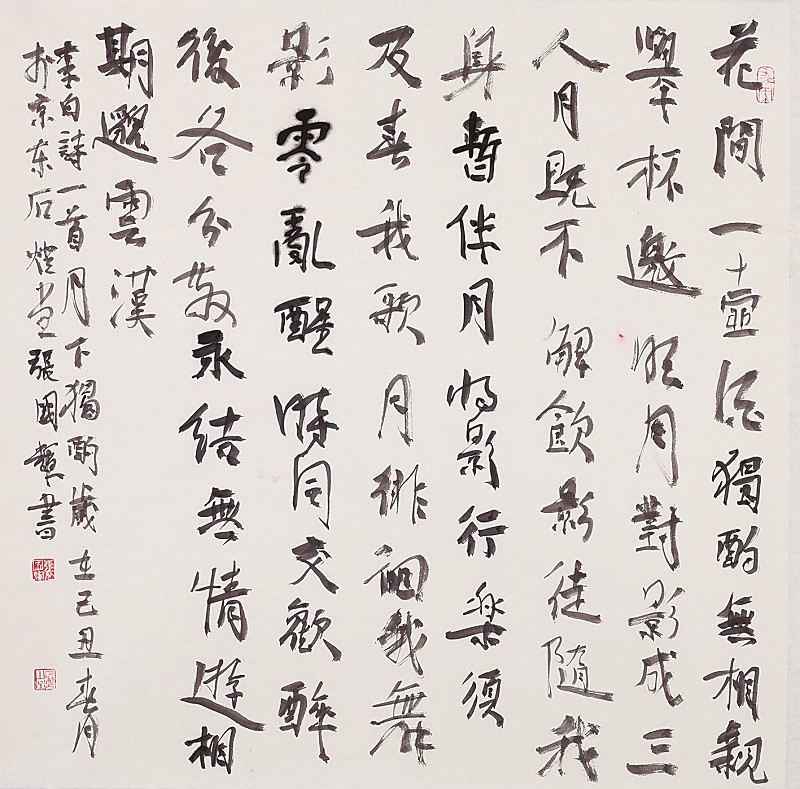 花間一壺酒獨酌無相親
舉杯邀明月對影成三
人月既不解飲影徒隨我
身暫伴月將影行樂須
及春我歌月徘徊我舞
影零亂醒時同交歡醉
後各分散永結無情遊相
期邈雲漢
李白詩一首月下獨酌歲在己丑春月
於京东石燈畫張國輦書